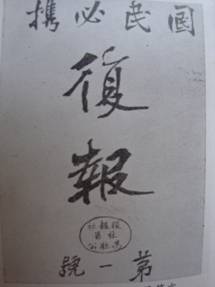 國民必携
復報
第一號